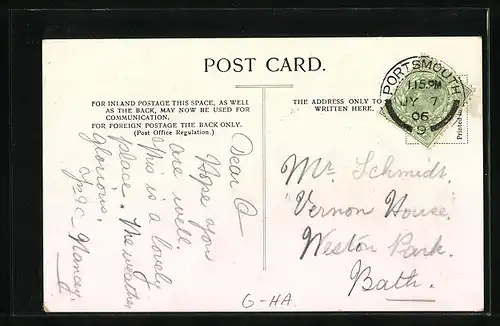 POST CARD.
FOR INLAND POSTAGE THIS SPACE, AS WELL
AS THE BACK, MAY NOW BE USED FOR
COMMUNICATION.
FOR FOREIGN POSTAGE THE BACK ONLY.
(Post Office Regulation.)
THE ADDRESS ONLY TO
WRITTEN HERE.
PORTSMOUTH
1.15 PM
JY 7
06
9
Printed
Dear
Hope you
are well.
This is a lovely
place. The weather
glorious.
Nancy.
Mr. Schmidt.
Vernon House.
Weston Park.
Bath.
G-HA